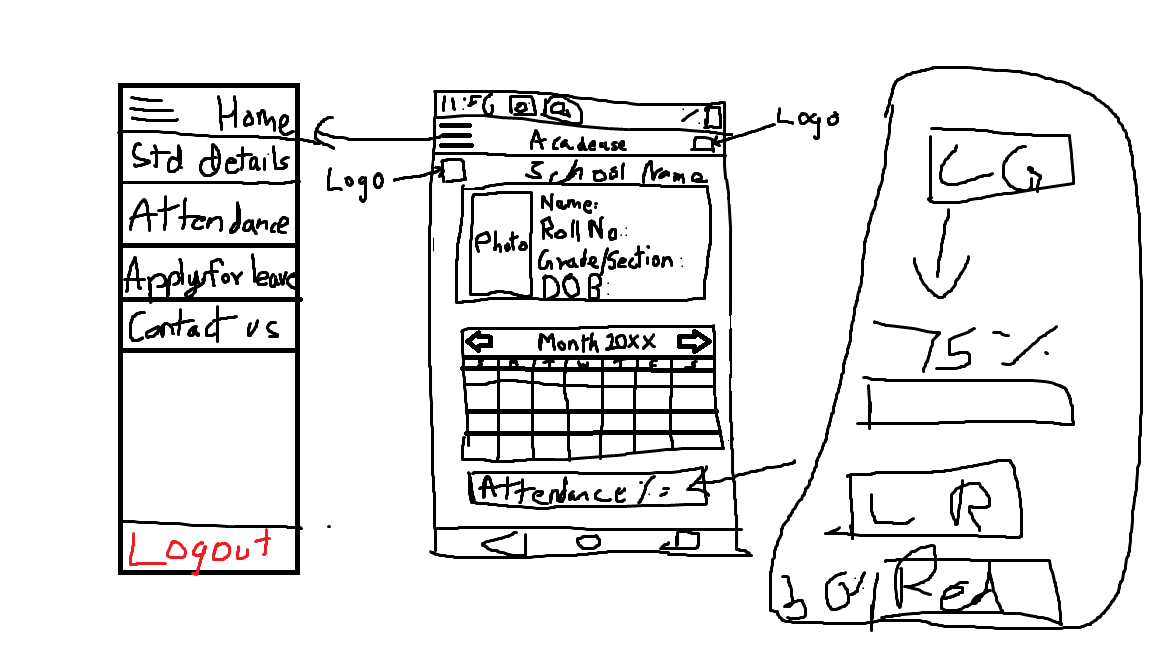 Home
Std details
Attendance
Apply for leave
Contact us
Logout
11:56
Acadease
Logo
Logo
School Name
Photo
Name:
Roll No.:
Grade/Section:
DOB:
Month 20XX
S M T W T F S
Attendance % =
LG
75%
LR
Red